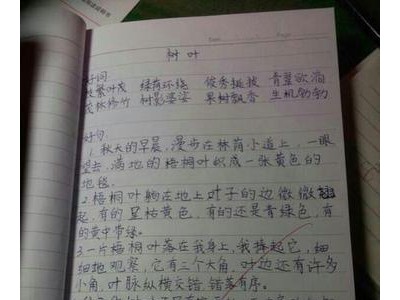 树叶
好词
枝繁叶茂 绿荫环绕 俊秀挺拔 青翠欲滴
茂林修竹 树影婆娑 果树飘香 生机勃勃
好句
1.秋天的早晨,漫步在林荫小道上,一眼
望去,满地的梧桐叶织成一张黄色的
地毯。
2.梧桐叶躺在地上叶子的边微微翘
起,有的呈枯黄色,有的还是青绿色,有
的黄中带绿。
3.一片梧桐叶落在我身上,我捧起它,细
细地观察,它有三个大角,叶边还有许多
小角,叶脉纵横交错,错落有序。